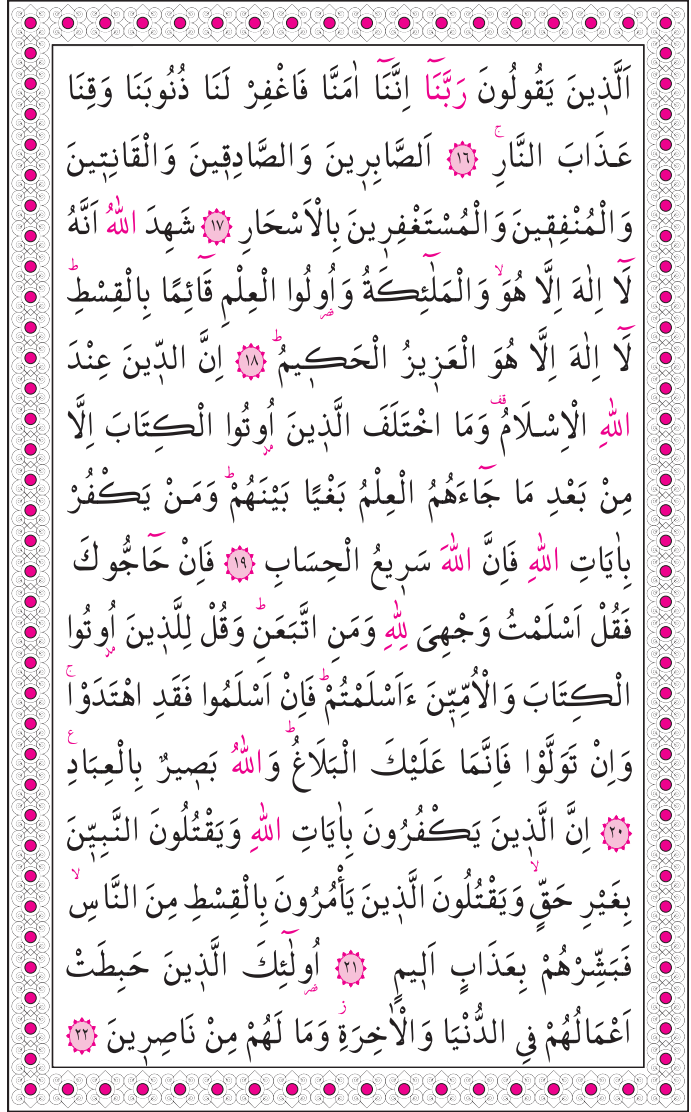 اَلَّذ۪ينَ يَقُولُونَ رَبَّنَٓا اِنَّنَٓا اٰمَنَّا فَاغْفِرْ لَنَا ذُنُوبَنَا وَقِنَا
عَذَابَ النَّارِۚ ﴿١٦﴾ اَلصَّابِر۪ينَ وَالصَّادِق۪ينَ وَالْقَانِت۪ينَ
وَالْمُنْفِق۪ينَ وَالْمُسْتَغْفِر۪ينَ بِالْاَسْحَارِ ﴿١٧﴾ شَهِدَ اللّٰهُ اَنَّهُ
لَٓا اِلٰهَ اِلَّا هُوَۙ وَالْمَلٰٓئِكَةُ وَاُو۬لُوا الْعِلْمِ قَٓائِمًا بِالْقِسْطِۜ
لَٓا اِلٰهَ اِلَّا هُوَ الْعَز۪يزُ الْحَك۪يمُۜ ﴿١٨﴾ اِنَّ الدّ۪ينَ عِنْدَ
اللّٰهِ الْاِسْلَامُ۠ وَمَا اخْتَلَفَ الَّذ۪ينَ اُو۫تُوا الْكِتَابَ اِلَّا
مِنْ بَعْدِ مَا جَٓاءَهُمُ الْعِلْمُ بَغْيًا بَيْنَهُمْۜ وَمَنْ يَكْفُرْ
بِاٰيَاتِ اللّٰهِ فَاِنَّ اللّٰهَ سَر۪يعُ الْحِسَابِ ﴿١٩﴾ فَاِنْ حَٓاجُّوكَ
فَقُلْ اَسْلَمْتُ وَجْهِيَ لِلّٰهِ وَمَنِ اتَّبَعَنِۜ وَقُلْ لِلَّذ۪ينَ اُو۫تُوا
الْكِتَابَ وَالْاُمِّيّ۪نَ ءَاَسْلَمْتُمْۜ فَاِنْ اَسْلَمُوا فَقَدِ اهْتَدَوْاۚ
وَاِنْ تَوَلَّوْا فَاِنَّمَا عَلَيْكَ الْبَلَاغُۜ وَاللّٰهُ بَص۪يرٌ بِالْعِبَادِ۟
﴿٢٠﴾ اِنَّ الَّذ۪ينَ يَكْفُرُونَ بِاٰيَاتِ اللّٰهِ وَيَقْتُلُونَ النَّبِيّ۪نَ
بِغَيْرِ حَقٍّۙ وَيَقْتُلُونَ الَّذ۪ينَ يَأْمُرُونَ بِالْقِسْطِ مِنَ النَّاسِۙ
فَبَشِّرْهُمْ بِعَذَابٍ اَل۪يمٍ ﴿٢١﴾ اُو۬لٰٓئِكَ الَّذ۪ينَ حَبِطَتْ
اَعْمَالُهُمْ فِي الدُّنْيَا وَالْاٰخِرَةِۘ وَمَا لَهُمْ مِنْ نَاصِر۪ينَ ﴿٢٢﴾